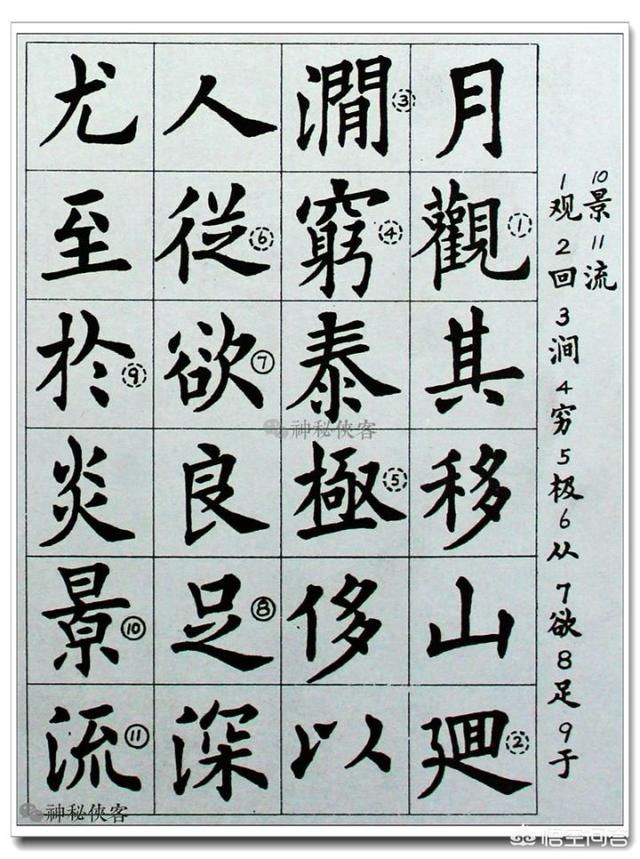 月觀①其移山廻②
澗③窮④泰極⑤侈以
人從⑥欲⑦良足⑧深
尤至於⑨炎景⑩流⑪
10景11流
1观2回3涧4穷5极6从7欲8足9于
神秘侠客
神秘侠客
悟空问答